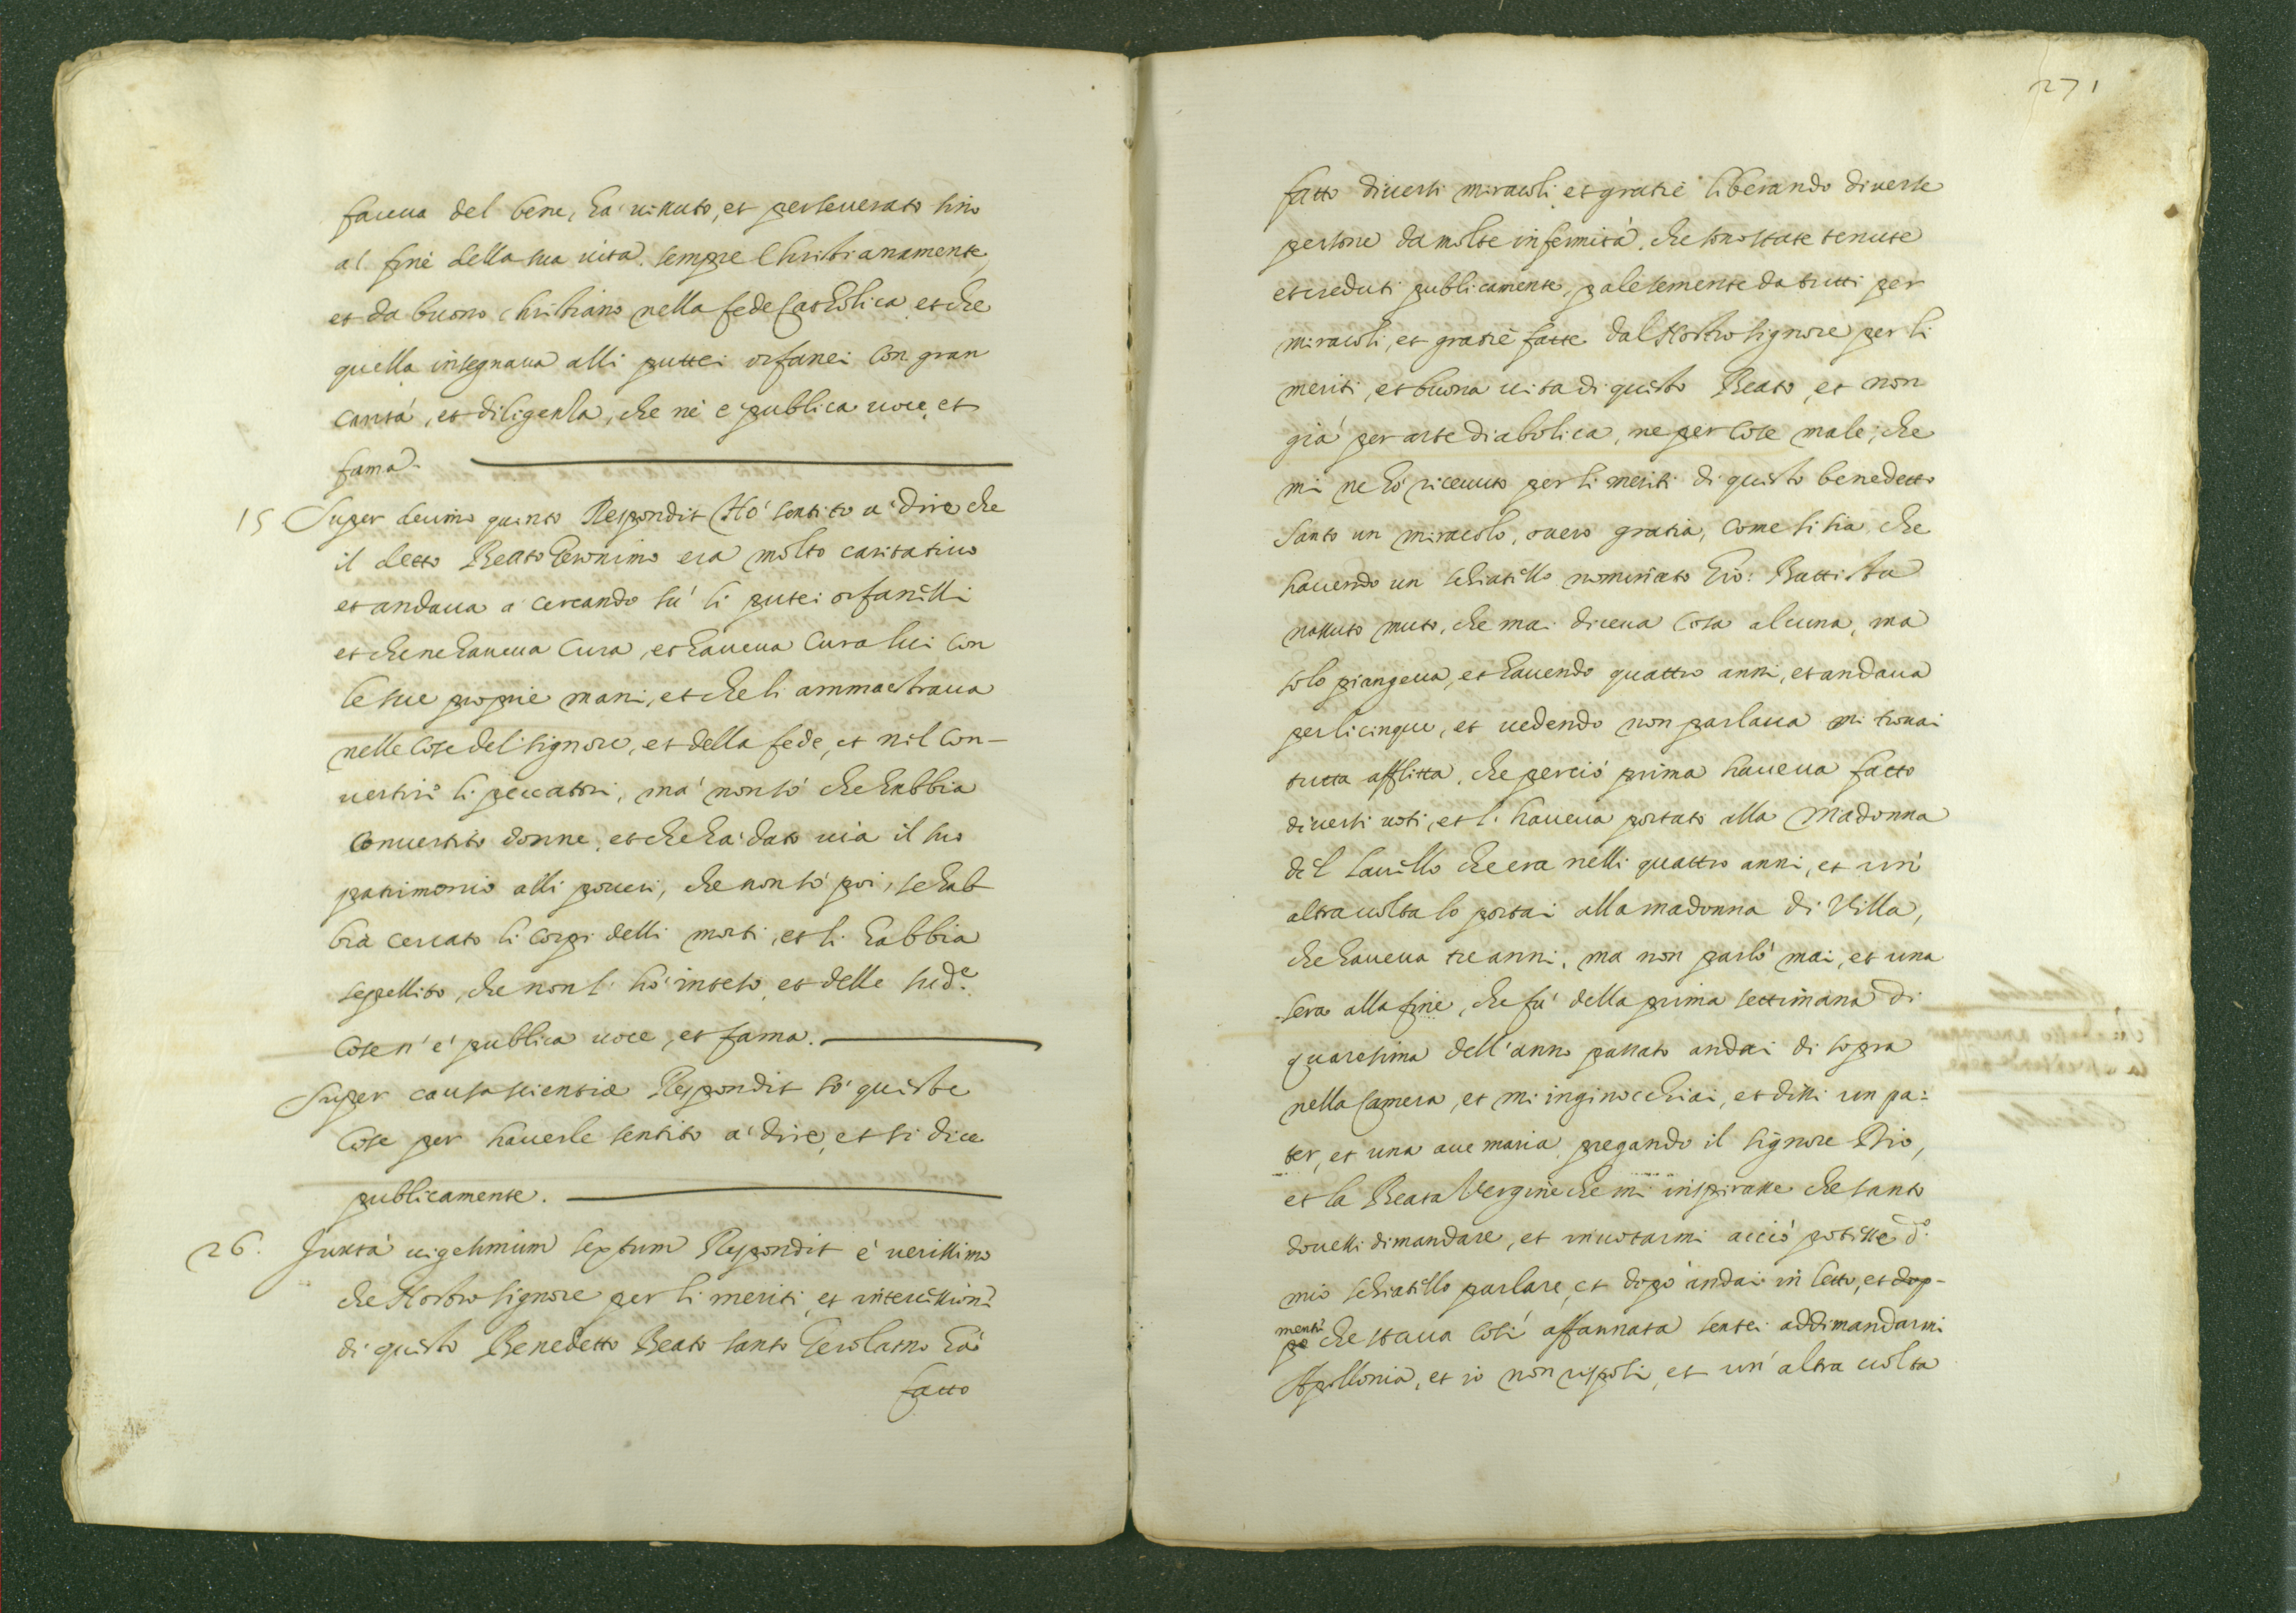 faceua del bene, ha uissuto, et perseuerato sino
al fine della sua uita sempre Christianamente,
et da buono christiano nella fede Catholica, et che
quella insegnaua alli puttei orfanei con gran
carità, et diligenza, che nè e publica uoce, et
fama.
15 Super decimo quinto Respondit Hò sentito a dire che
il detto Beato Geronimo era molto caritatiuo
et andaua a cercando sù li putei orfanelli
et che ne haueua cura, et haueua cura lui con
le sue proprie mani, et che li ammaestraua
nelle cose del signore, et della fede, et nel con-
uertire li peccatori, mà non sò che habbia
conuertito donne, et che ha dato uia il suo
patrimonio alli poueri, che non sò poi, se hab-
bia cercato li corpi delli morti, et li habbia
sepellito, che non l' hò inteso, et delle sud.e
cose n' e' publica uoce, et fama.
Super causa scientiæ Respondit sò queste
cose per hauerle sentito a' dire, et si dice
publicamente.
26. Juxtà uigesimum septum Respondit è uerissimo
che Nostro Signore per li meriti, et intercessioni
di questo Benedetto Beato santo Gerolamo hà
fatto
271
fatto diuersi miracoli, et gratie liberando diuerse
persone da molte infermità, che sono state tenute
et creduti publicamente, palesemente da tutti per
miracoli, et gratie fatte dal Nostro Signore per li
meriti, et buona uita di questo Beato, et non
già per arte diabolica, ne per cose male, che
mi ne hò riceuuto per li meriti di questo benedetto
santo un miracolo, ouero gratia, come si sia, che
hauendo un schiatello nominato Gio: Battista
nassuto muto, che mai diceua cosa alcuna, ma
solo piangeua, et hauendo quattro anni, et andaua
per li cinque, et uedendo non parlaua mi trouai
tutta afflitta, che perciò prima haueua fatto
diuersi uoti, et l' haueua portato alla Madonna
del Sauello che era nelli quattro anni, et un'
altra uolta lo portai alla madonna di Villa,
che haueua tre anni, ma non parlò mai, et una
sera alla fine, che fu' della prima settimana di
quaresima dell' anno passato andai di sopra
nella camera, et mi inginocchiai, et dissi un pa:
ter, et una aue maria, pregando il Signore Dio,
et la Beata Vergine che mi inspirasse che santo
douessi dimandare, et inuotarmi acciò potesse d.o
mio schiatello parlare, et dopò andai in letto, et dop-
po mentre che staua così affannata sentei addimandarmi
Apollonia, et io non risposi, et un' altra uolta